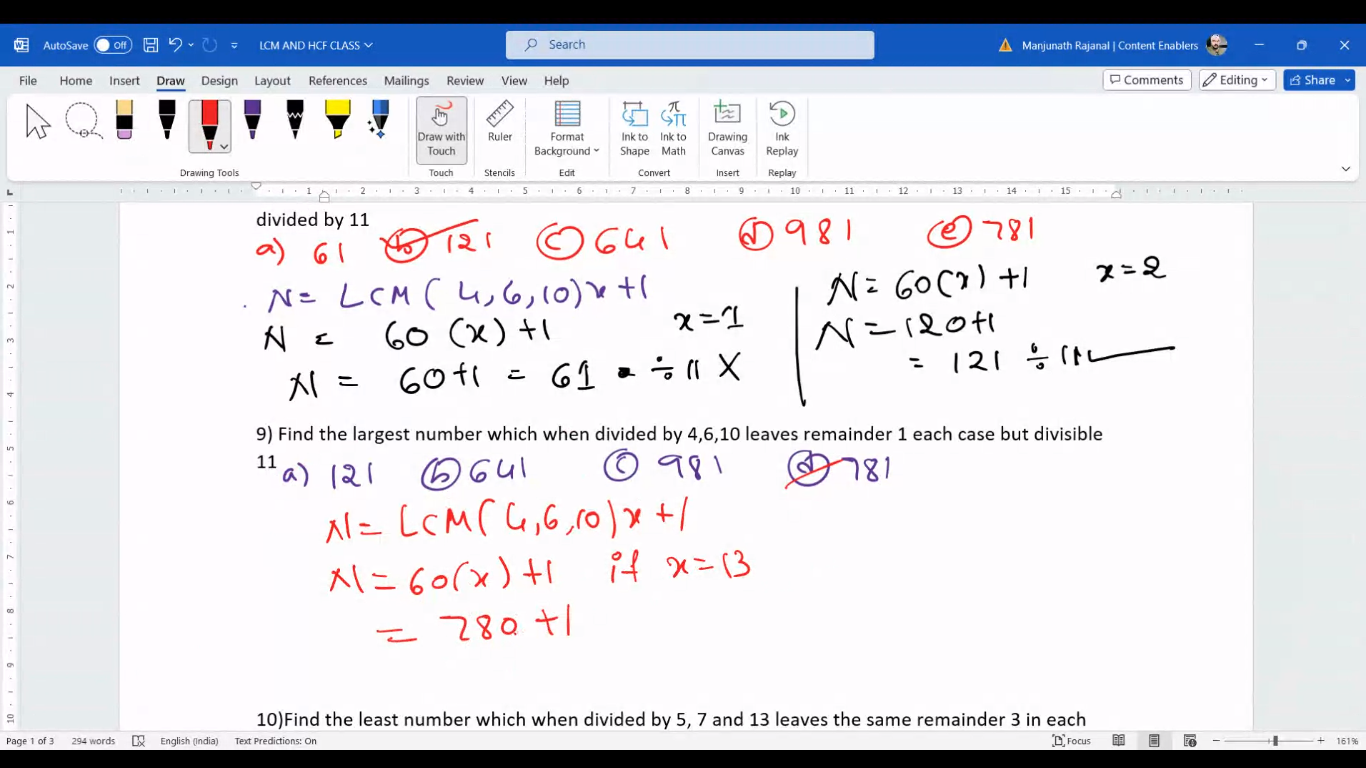 AutoSave Off LCM AND HCF CLASS Search Manjunath Rajanal | Content Enablers
File Home Insert Draw Design Layout References Mailings Review View Help Comments Editing Share
Draw with Touch Ruler Format Background Ink to Shape Ink to Math Drawing Canvas Ink Replay
Drawing Tools Touch Stencils Edit Convert Insert Replay
1 1 2 3 4 5 6 7 8 9 10 11 12 13 14 15
divided by 11
a) 61 b 121 c 641 d 981 e 781
N = LCM( 4,6,10)x+1
N = 60 (x) +1 x=1
N = 60+1 = 61 ÷ 11 X
N = 60(x) +1 x=2
N = 120+1
= 121 ÷ 11
9) Find the largest number which when divided by 4,6,10 leaves remainder 1 each case but divisible
11 a) 121 b 641 c 981 d 781
N = LCM( 4,6,10)x +1
N = 60(x) +1 if x=13
= 780 +1
10)Find the least number which when divided by 5, 7 and 13 leaves the same remainder 3 in each
Page 1 of 3 294 words English (India) Text Predictions: On Focus 161%